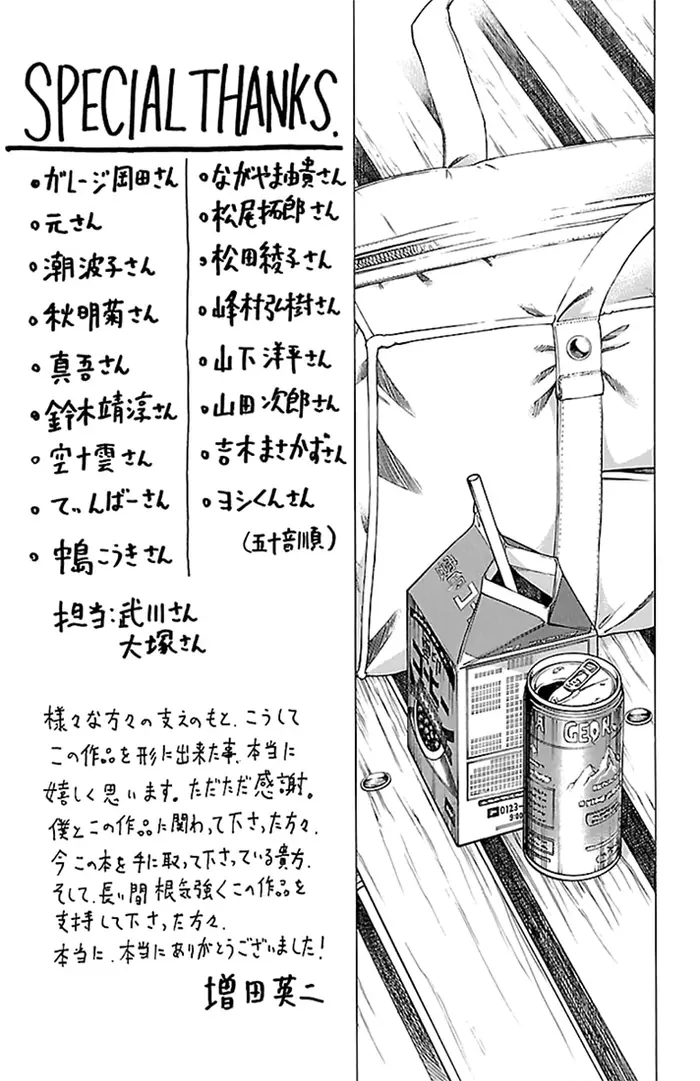 SPECIAL THANKS.
・ガレージ岡田さん
・元さん
・潮波子さん
・秋明菊さん
・真吾さん
・鈴木靖淳さん
・空十雲さん
・てぃんばーさん
・中島こうきさん
・ながやま由貴さん
・松尾拓郎さん
・松田綾子さん
・峰村弘樹さん
・山下洋平さん
・山田次郎さん
・吉木まさかずさん
・ヨシくんさん
(五十音順)
担当:武川さん
大塚さん
様々な方々の支えのもと、こうして
この作品を形に出来た事、本当に
嬉しく思います。ただただ感謝。
僕とこの作品に関わって下さった方々、
今この本を手に取って下さっている貴方、
そして、長い間根気強くこの作品を
支持して下さった方々、
本当に、本当にありがとうございました!
増田英二
0123-
9:00
GEOR